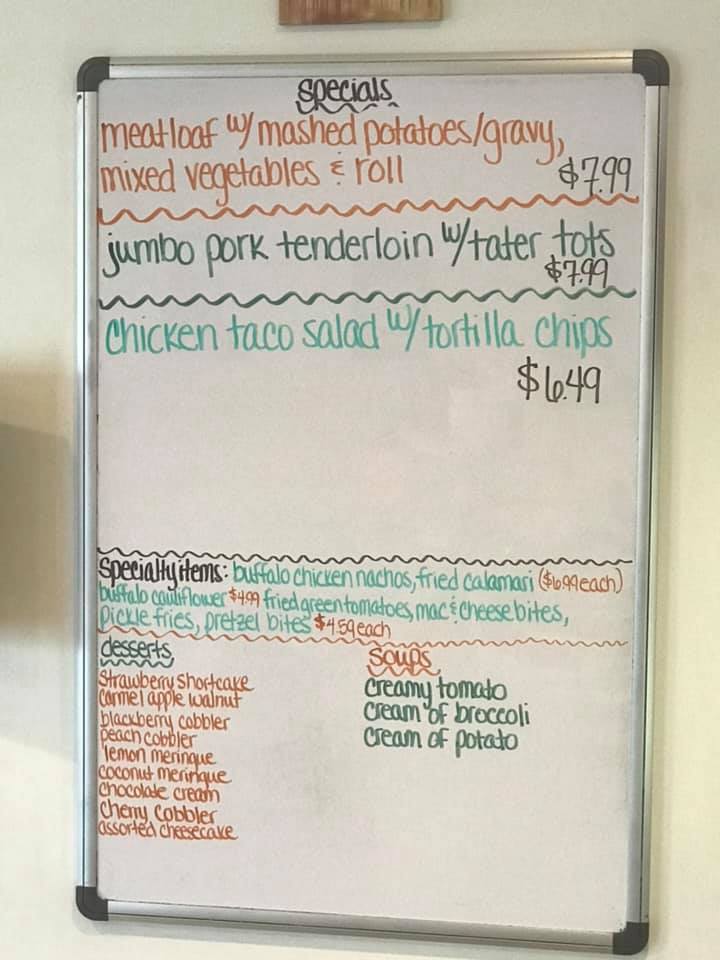 specials
meatloaf w/ mashed potatoes/gravy,
mixed vegetables & roll $7.99
jumbo pork tenderloin w/tater tots
$7.99
chicken taco salad w/tortilla chips
$6.49
Specialty items: buffalo chicken nachos, fried calamari ($6.99 each)
buffalo cauliflower $4.99 fried green tomatoes, mac & cheese bites,
pickle fries, pretzel bites $4.59 each
desserts
Strawberry shortcake
carmel apple walnut
blackberry cobbler
peach cobbler
lemon meringue
coconut meringue
chocolate cream
cherry cobbler
assorted cheesecake
Soups
creamy tomato
cream of broccoli
cream of potato